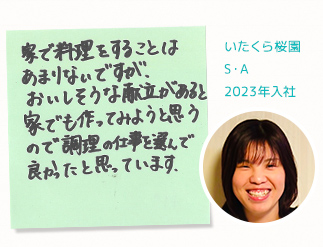 家で料理をすることは
あまりないですが、
おいしそうな献立があると
家でも作ってみようと思う
ので調理の仕事を選んで
良かったと思っています。
いたくら桜園
S・A
2023年入社